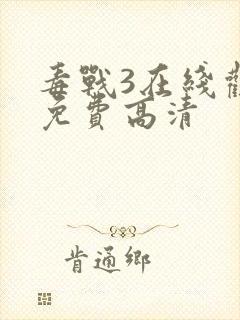 毒戰3在綫觀
免費高清
肯通鄉